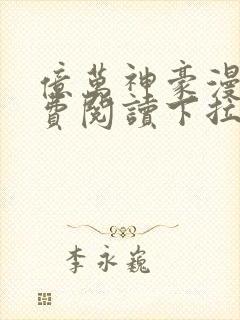 億萬神豪漫
費閱讀下拉
李永巍